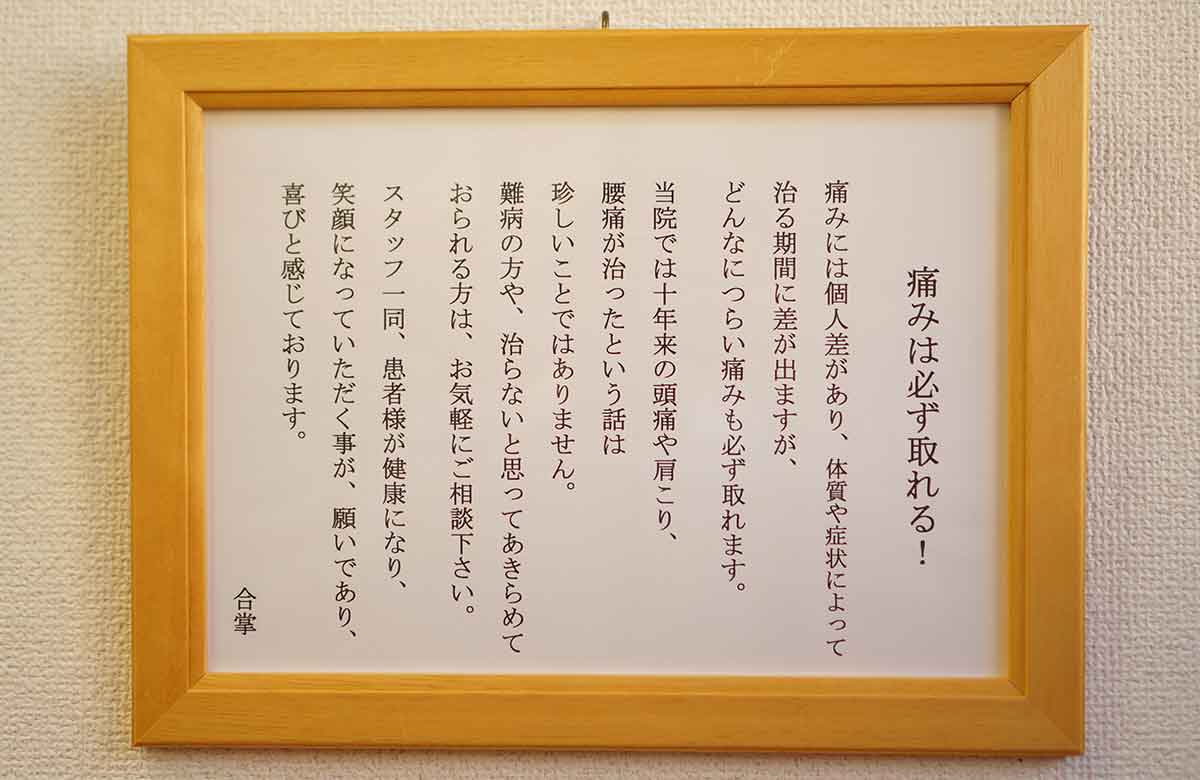 痛みは必ず取れる！
痛みには個人差があり、体質や症状によって
治る期間に差が出ますが、
どんなにつらい痛みも必ず取れます。
当院では十年来の頭痛や肩こり、
腰痛が治ったという話は
珍しいことではありません。
難病の方や、治らないと思ってあきらめて
おられる方は、お気軽にご相談下さい。
スタッフ一同、患者様が健康になり、
笑顔になっていただく事が、願いであり、
喜びと感じております。
合掌